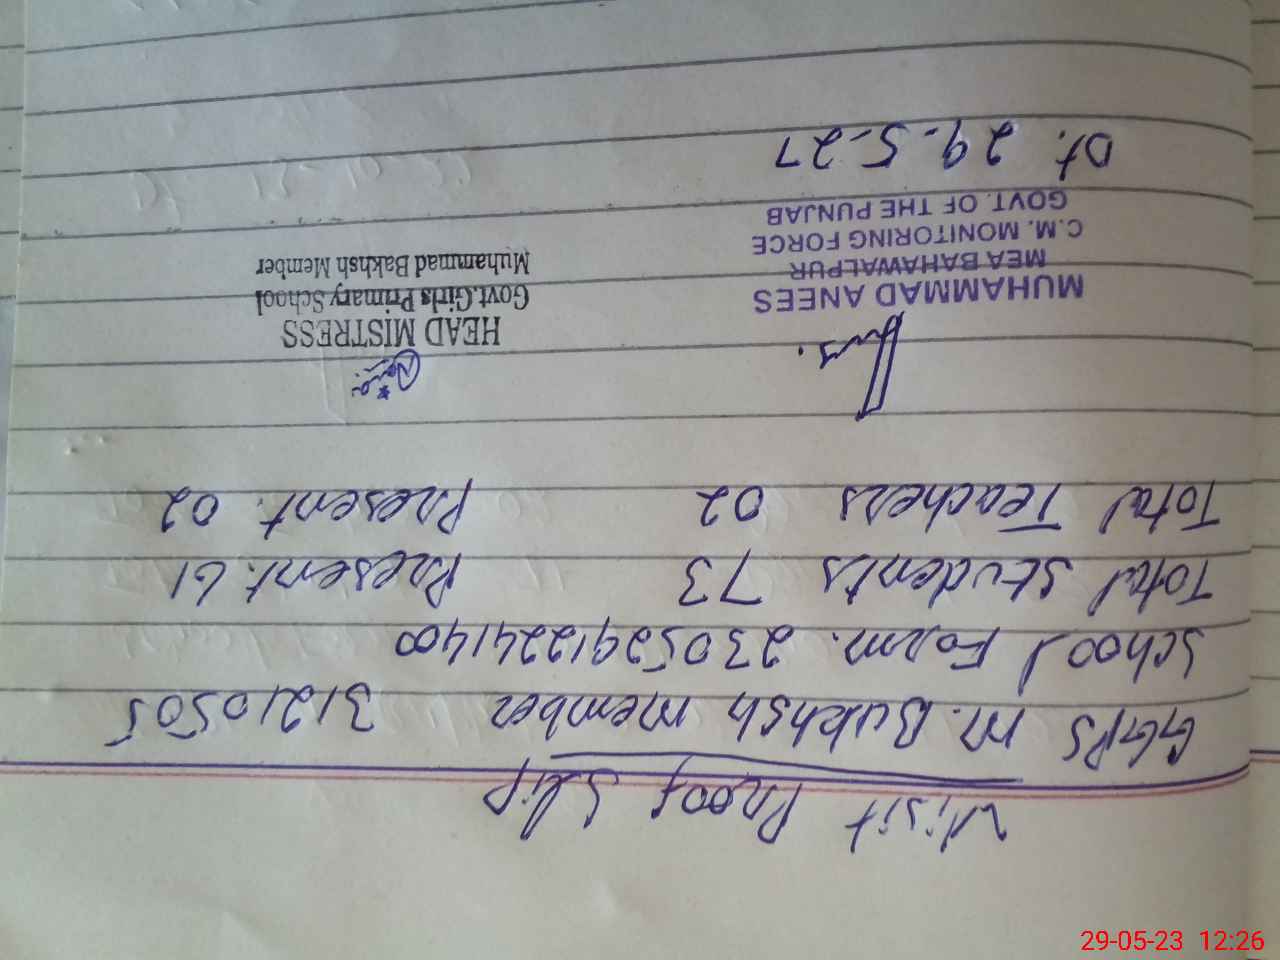 Visit Proof Slip
GGPS M. Bukhsh member 31210505
School Form. 230529122241400
Total Students 73 Present. 61
Total Teachers 02 Present. 02
MUHAMMAD ANEES
MEA BAHAWALPUR
C.M. MONITORING FORCE
GOVT. OF THE PUNJAB
Dt. 29-5-27
HEAD MISTRESS
Govt.Girls Primary School
Muhammad Bakhsh Member
29-05-23 12:26